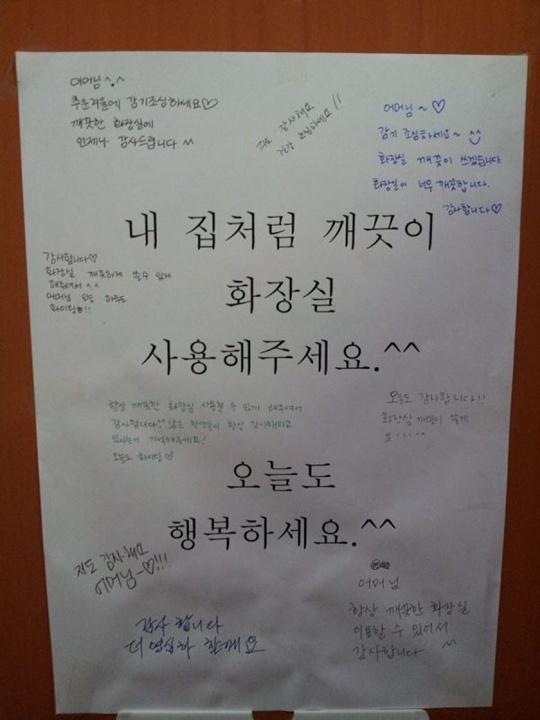 어머님 ^.^
추운겨울에 감기조심하세요♡
깨끗한 화장실에
언제나 감사드립니다 ^^
저도 감사해요
건강 조심하세요!!
어머님~♡
감기 조심하세요~
화장실 깨끗이 쓰겠습니다
화장실이 너무 깨끗합니다.
감사합니다♡
내 집처럼 깨끗이
화장실
사용해주세요.^^
감사합니다♡
화장실 깨끗하게 쓸수 있게
해주셔서 ^^
어머님 오늘 하루도
화이팅!!
항상 깨끗한 화장실 사용할 수 있게 해주셔서
감사합니다^^ 많은 학생들이 항상 감사해하고
있다는거 기억해주세요!
오늘도 화이팅♡
오늘도 감사합니다!!
화장실 깨끗이 쓸게
요!!! ^^
오늘도
행복하세요.^^
저도 감사해요
어머님~♡!!!
감사 합니다
더 열심히 할게요
어머님
항상 깨끗한 화장실
이용할 수 있어서
감사합니다 ^^